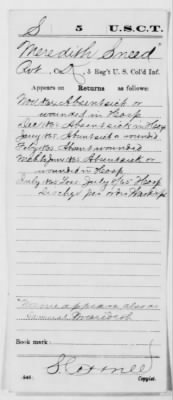 S 5 U.S.C.T.
Meredith Sneed
Pvt, Co. D, 5 Reg't U. S. Col'd Inf.
Appears on Returns as follows:
Nov 64 Absent sick or
wounded in Hosp
Dec 64 Absent sick in Hosp
Jany 65 Absent sick or wound
Feby 65 Absent wounded
Mch to June 65 Absent sick or
wounded in Hosp
July 65 Loss July 8/65 Hosp
Dischgd
Name appears also as
Samuel Meredith
Book mark:
Copyist.